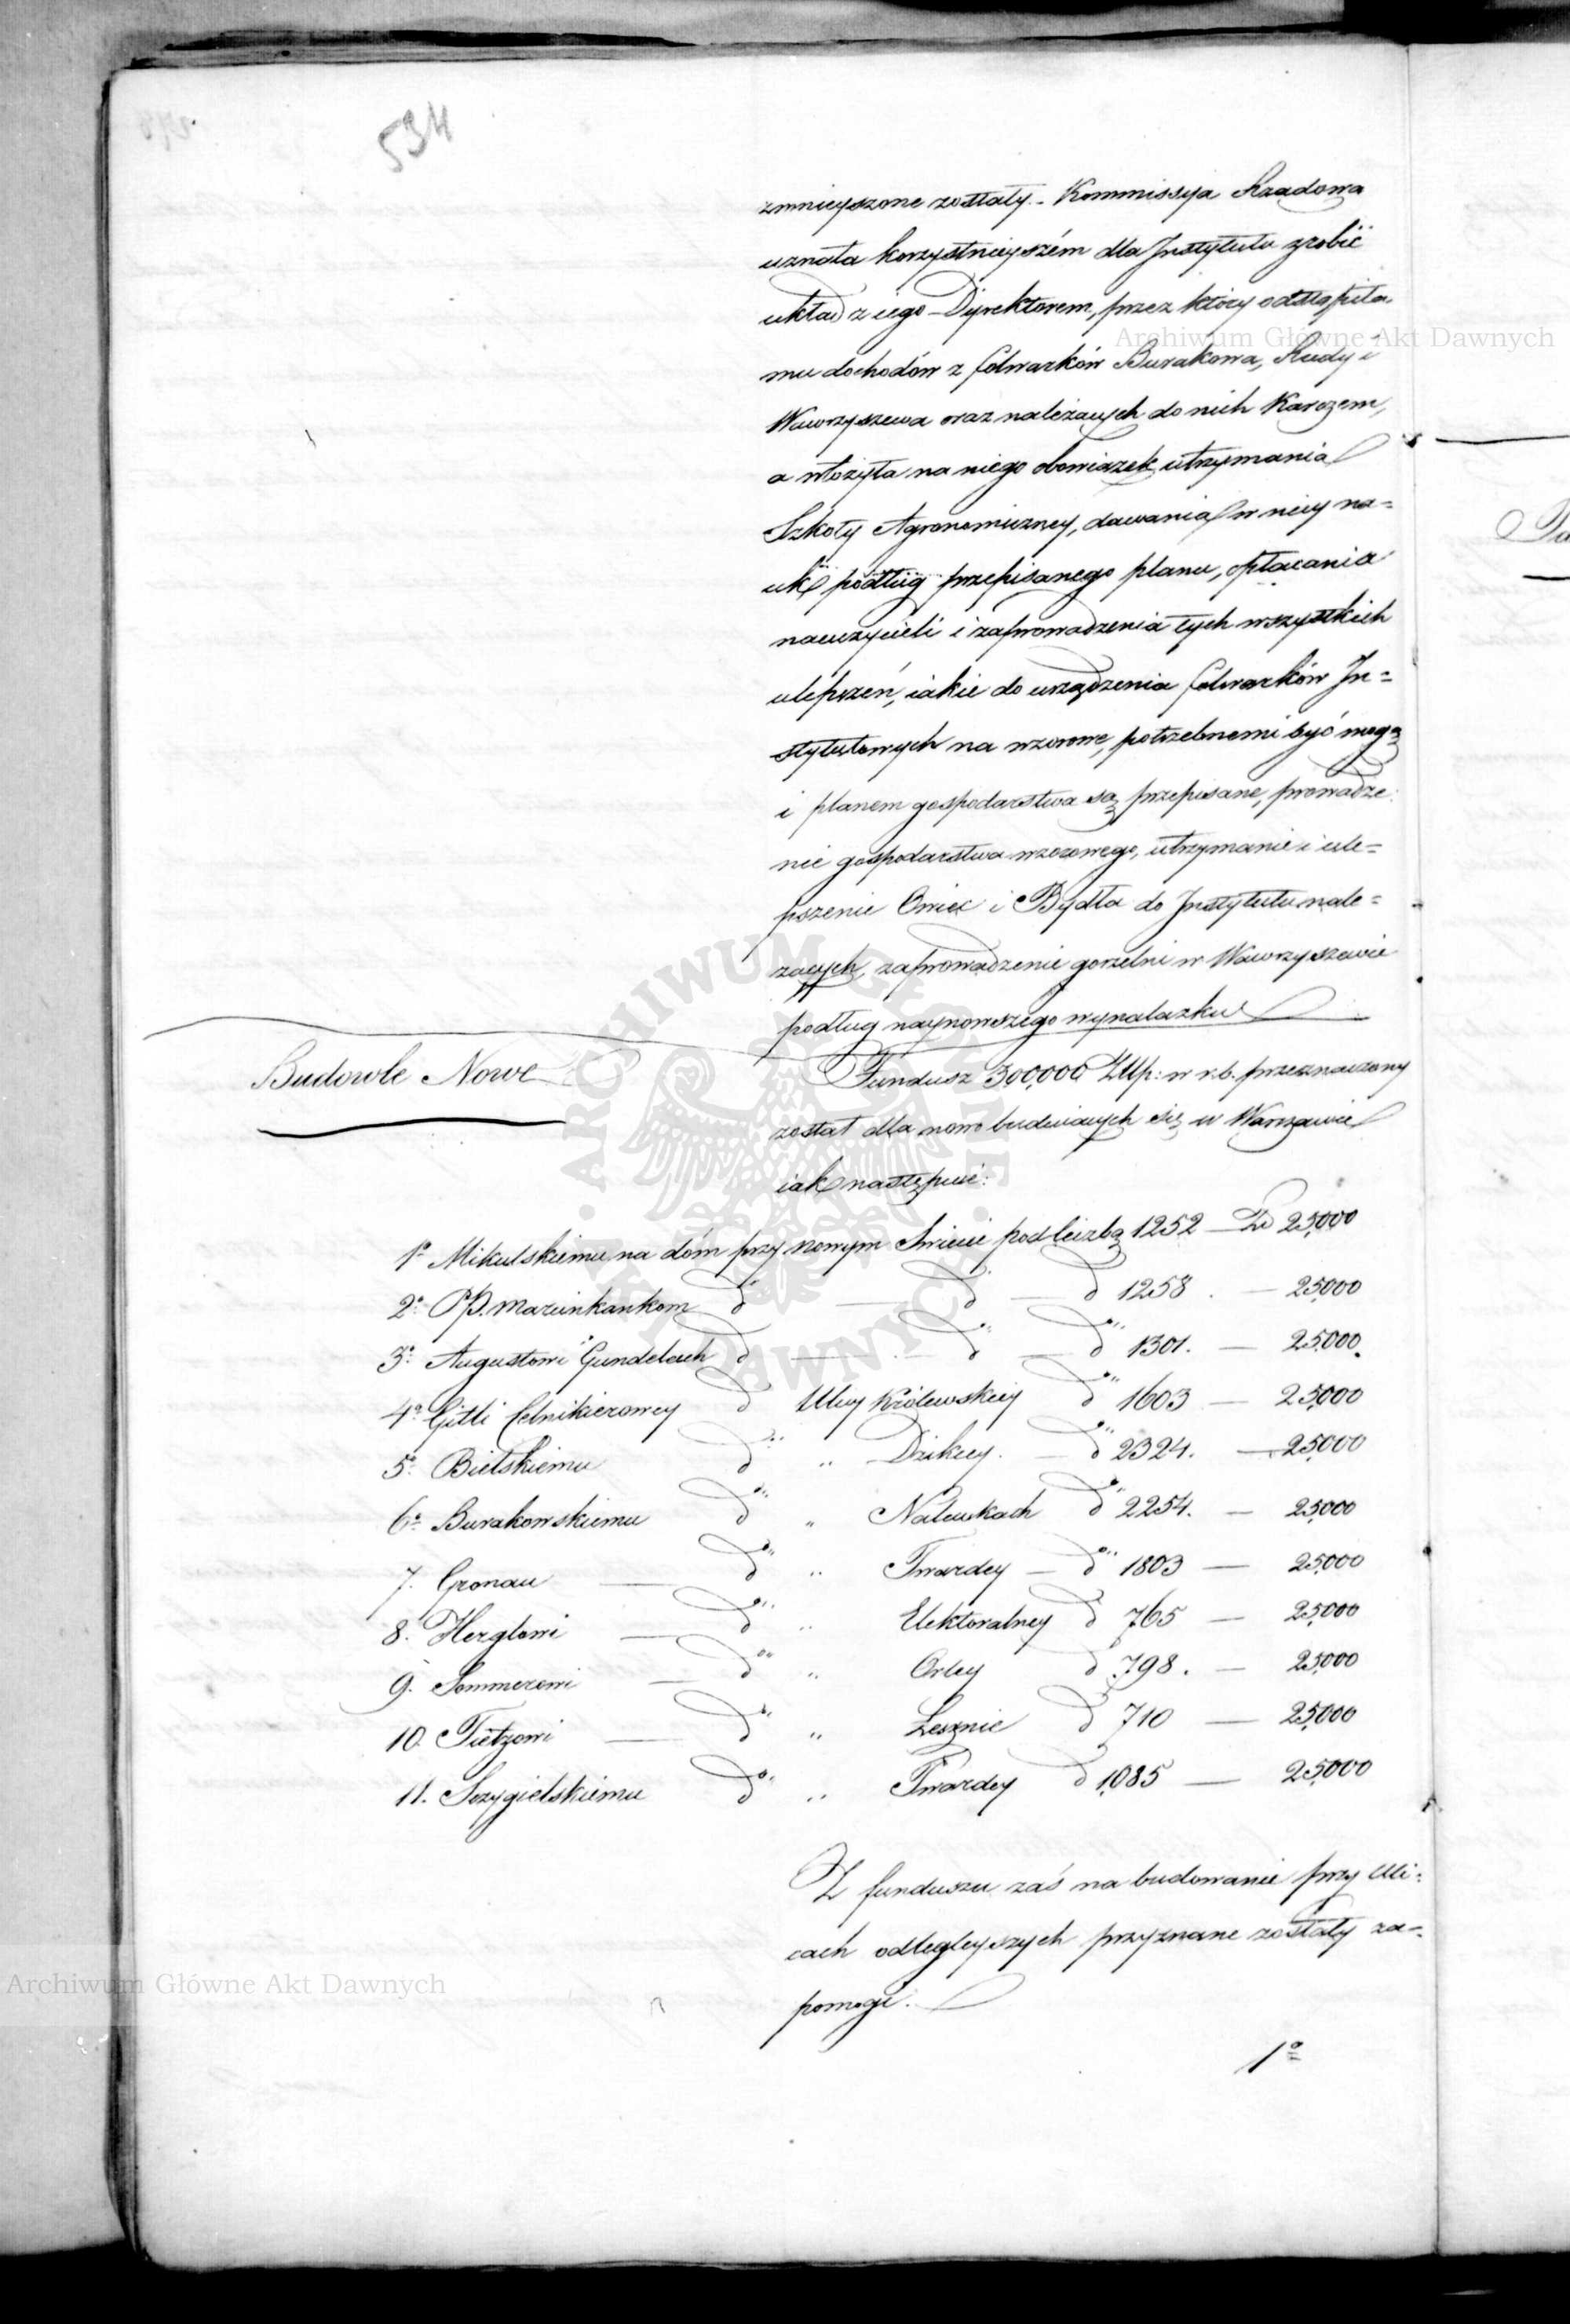 534
zmnieyszone zostały. Kommissya Rządowa
uznała korzystnieyszém dla Instytutu zrobić
układ z iego Dyrektorem, przez który odstąpiła
mu dochodów z folwarków Burakowa, Rudy i
Wawrzyszewa oraz należących do nich Karczem,
a włożyła na niego obowiązek utrzymania
Szkoły Agronomiczney, dawania w niey na=
uk podług przepisanego planu, opłacania
nauczycieli i zaprowadzenia tych wszystkich
ulepszeń, iakie do urządzenia folwarków In=
stytutowych na wzorowe, potrzebnemi być mogą
i planem gospodarstwa są przepisane, prowadze:
nie gospodarstwa wzorowego, utrzymanie i ule=
pszenie Owiec i Bydła do Instytutu nale=
żących, zaprowadzenie gorzelni w Wawrzyszewie
podług naynowszego wynalazku
Budowle Nowe
Fundusz 300,000 Złłp: w r.b. przeznaczony
został dla nowo buduiących się w Warszawie
iak następuie:
1o Mikulskiemu na dóm przy nowym Swiecie pod liczbą 1252 — Zł 25,000
2o PP. Marcinkankom do — do — do 1258 . — 25,000
3o Augustowi Gundelach do — do — do 1301. — 25,000.
4o Gitli Celnikierowey do Ulicy Królewskiey do 1603 — 25,000
5o Bielskiemu do " Dzikiey. — do 2324. — 25,000
6o Burakowskiemu do " Nalewkach do 2254. — 25,000
7. Gronau — do " Twardey — do 1803 — 25,000
8. Herglowi — do " Elektoralney do 765 — 25,000
9. Sommerowi — do " Orley do 798. — 25,000
10. Tietzowi — do " Lesznie do 710 — 25,000
11. Sczygielskiemu do " Twardey do 1085 — 25,000
Z funduszu zaś na budowanie przy Uli:
cach odlegleyszych przyznane zostały za=
pomogi.
1o
Archiwum Główne Akt Dawnych
Archiwum Główne Akt Dawnych
ARCHIWUM GŁÓWNE AKT DAWNYCH